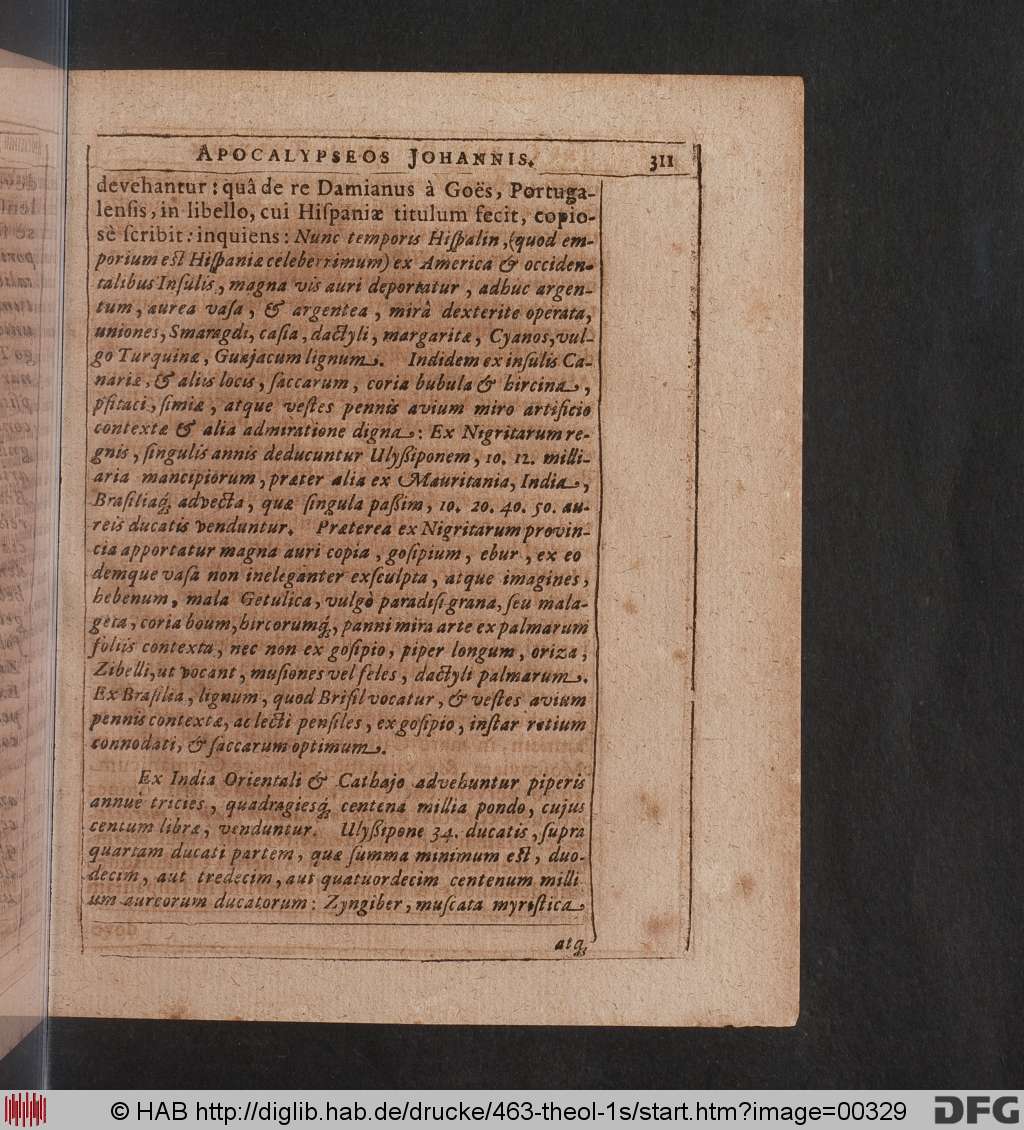 APOCALYPSEOS JOHANNIS. 311
devehantur: quâ de re Damianus à Goës, Portuga-
lenſis, in libello, cui Hiſpaniæ titulum fecit, copio-
sè ſcribit: inquiens: Nunc temporis Hiſpalin, (quod em-
porium eſt Hiſpaniæ celeberrimum) ex America & occiden-
talibus Inſulis, magna vis auri deportatur, adhuc argen-
tum, aurea vaſa, & argentea, mirâ dexterite operata,
uniones, Smaragdi, caſia, dactyli, margaritæ, Cyanos, vul-
go Turquinæ, Guajacum lignum. Indidem ex inſulis Ca-
nariæ, & aliis locis, ſaccarum, coria bubula & hircina,
pſitaci, ſimiæ, atque veſtes pennis avium miro artificio
contextæ & alia admiratione digna: Ex Nigritarum re-
gnis, ſingulis annis deducuntur Ulyßiponem, 10. 12. milli-
aria mancipiorum, præter alia ex Mauritania, India,
Braſiliaq́; advecta, quæ ſingula paßim, 10. 20. 40. 50. au-
reis ducatis venduntur. Præterea ex Nigritarum provin-
cia apportatur magna auri copia, goſipium, ebur, ex eo
demque vaſa non ineleganter exſculpta, atque imagines,
hebenum, mala Getulica, vulgò paradiſi grana, ſeu mala-
geta, coria boum, hircorumq́;, panni mira arte ex palmarum
foliis contexta, nec non ex goſipio, piper longum, oriza,
Zibelli, ut vocant, muſiones vel feles, dactyli palmarum.
Ex Braſilia, lignum, quod Briſil vocatur, & veſtes avium
pennis contextæ, ac lecti penſiles, ex goſipio, inſtar retium
connodati, & ſaccarum optimum.
Ex India Orientali & Cathajo advehuntur piperis
annuè tricies, quadragiesq́; centena millia pondo, cujus
centum libræ, venduntur. Ulyßipone 34. ducatis, ſupra
quartam ducati partem, quæ ſumma minimum eſt, duo-
decim, aut tredecim, aut quatuordecim centenum milli
um aureorum ducatorum: Zyngiber, muſcata myriſtica
atq́;
© HAB http://diglib.hab.de/drucke/463-theol-1s/start.htm?image=00329 DFG